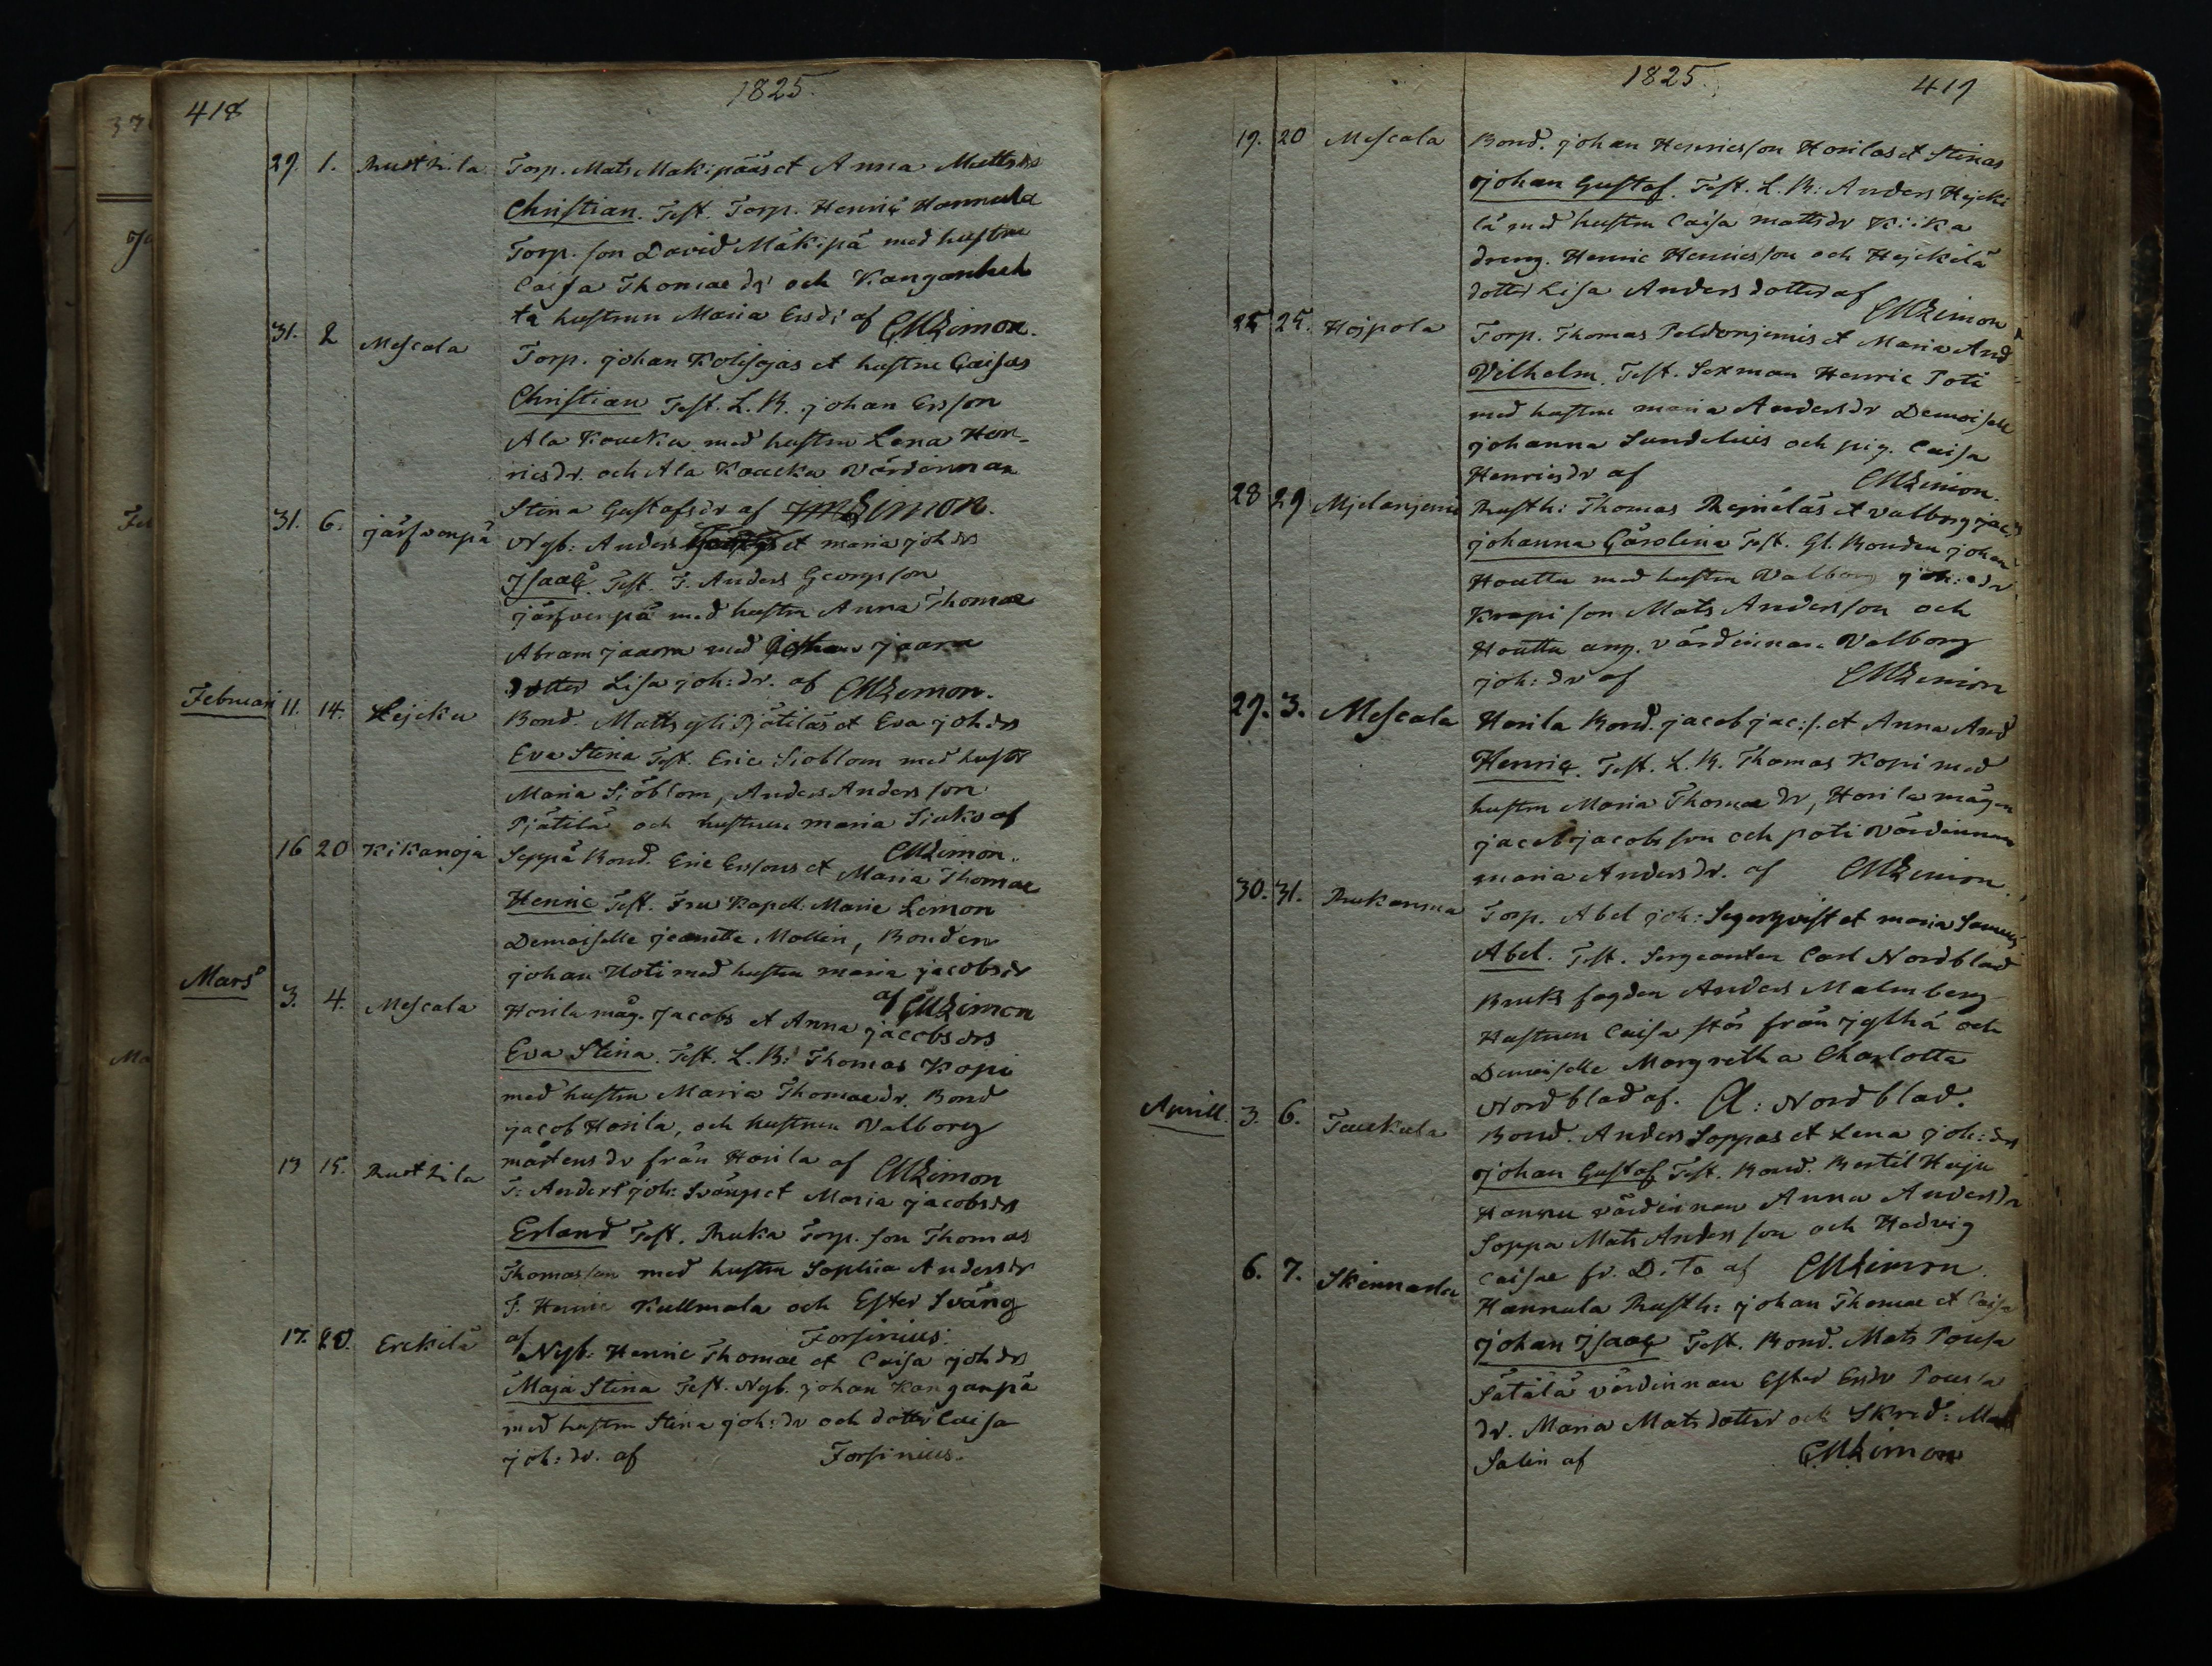 418
1825.
29. 1. Rusthila Torp. Mats Makipääs et Anna Mattsdrs
Christian. Test. Torp. Henric Hannula
Torp. son David Mäkipä med hustru
Caisa Thomae dr och Kanganhuh
ta hustrun Maria Ersdr af CMLimon.
31. 2 Mescala Torp. johan Kolisojas et hustru Caisas
Christian Test. L. B. johan Ersson
Ala Koucka med hustru Lena Hen-
ricsdr. och Ala Koucka värdinnan
Stina Gustafsdr af Limon.
31. 6. järfvenpä Nyb: Anders et maria joh drs
Isaac. Test. T. Anders Georgsson
järfvenpä med hustru Anna Thomae
Abram jaara med jaara
dotter Lisa joh: dr. af CMLimon.
Februari 11. 14. Lejcku Bond. Matts yli Pjätiläs et Eva joh drs
Eva Stina Test. Eric Sioblom med hustr
Maria Sjöblom, Anders Andersson
Pjätilä och hustrun maria Siuks af
CMLimon.
16 20 Kikanoja Seppä Bond. Eric Erssons et Maria Thomae
Henric Test. Fru Kapell: Marie Lemon
Demoiselle jeanette Mollin, Bonden
johan Hoti med hustru maria jacobsdr
af CMLimon
Mars 3. 4. Mescala Horila måg. Jacobs et Anna jacobsdrs
Eva Stina. Test. L. B: Thomas Kopi
med hustru Maria Thomaedr. Bond
jacob Horila, och hustrun Valborg
mårtensdr från Horila af CMLimon
13 15. Rusthila T: Anders joh: Svängs et Maria jacobsdrs
Erland Test. Ruka Torp. son Thomas
Thomasson med hustru Sophia Andersdr
T. Henric Kullmala och Ester Sväng
af Forsinius.
17. 20. Erckilä Nyb: Henric Thomae et Caisa joh drs
Maja Stina Test. Nyb. johan Kanganpä
med hustru Stina joh: dr och dotter Caisa
joh: dr. af Forsinius.
1825. 419
19. 20 Mescala Bond. johan Henricsson Horilas et Stinas
johan Gustaf. Test. L. B: Anders Hejcki
lä med hustru Caisa mattsdr Kiika
dreng. Henric Henricsson och Hejckilä
dotter Lisa Andersdotter af CMLimon
25 25. Hojpola Torp. Thomas Peldonjemis et Maria And
Vilhelm. Test. Sexman Henric Poti
med hustru maria Andersdr Demoiselle
johanna Sundelius och pig. Caisa
Henricsdr af CMLimon.
28 29 Mjelanjemi Rusth: Thomas Rejniläs et valborg jac:
johanna Carolina Test. Gl. Bonden johan
Houttu med hustru Valborg joh: dr.
Krapi son Mats Andersson och
Houttu ung. värdinnan Valborg
joh: dr af CMLimon
29. 3. Mescala Horila Bond. jacob jac: s. et Anna And
Henric. Test. L. B. Thomas Kopi med
hustru Maria Thomae dr, Horila mågen
jacob jacobsson och poti värdinnan
maria Andersdr. af CMLimon.
30. 31. Rukanma Torp. Abel joh: Segerqvist et maria Samuels
Abel. Test. Sergeanten Carl Nordblad
Bruks fogden Anders Malmberg
Hustrun Caisa stör från jylhä och
Demoiselle Margretha Charlotta
Nordblad af. A: Nordblad.
Aprill. 3. 6. Tuckula Bond. Anders Soppas et Lena joh: drs
johan Gustaf Test. Bond. Bertil Heiju
Hannu värdinnan Anna Andersdr
Soppa Mats Andersson och Hedvig
Caisae fr. D:to af CMLimon.
6. 7. Skinnarla Hannula Rusth: johan Thomae et Caisa
johan Isaac Test. Bond. Mats Pousa
Sätälä värdinnan Ester Ersdr Pousa
dr. Maria Matsdotter och Skred: Mats
Salin af CMLimon